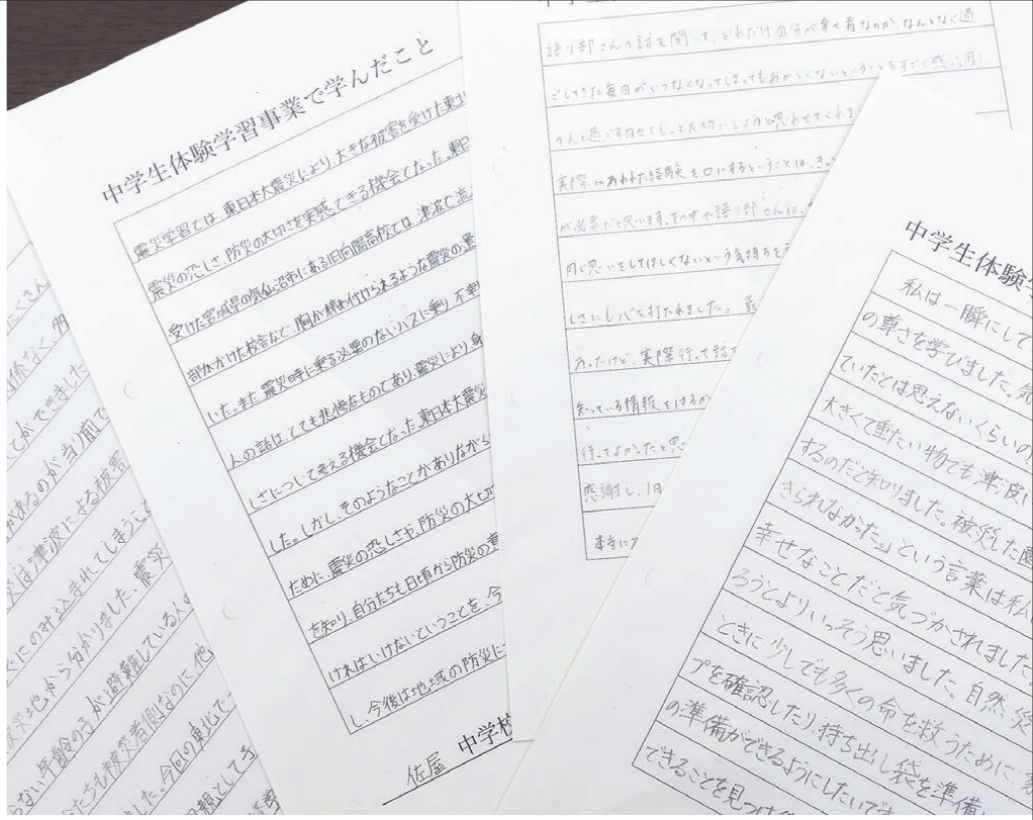 中学生体験学習事業で学んだこと
震災学習では、東日本大震災により、大きな被害を受けた東
震災の恐しさ、防災の大切さを実感できる機会となった。東日
受けた宮城県の気仙沼市にある旧向陽高校では、津波で流
部分かけた校舎など、胸が締め付けられるような震災の
した。また、震災時に乗る必要のないバスに乗り、不幸
人の話は、とても悲惨なものであり、震災により、身
しさについて考える機会となった。東日本大震災
した。しかし、そのようなことがありながら
ために、震災の恐しさや、防災の大切
を知り、自分たちも日頃から防災の意
ければいけないということを、今
し、今後は地域の防災に
佐屋 中学校
語り部さんの話を聞いて、どれだけ自分が幸せ者なのか、なんとなく過
ごしてきた毎日がいつなくなってしまってもおかしくないということをすごく感じ、周り
の人と過ごす時間をもっと大切にしようと思わせてくれま
実際にあわれた経験を口にするということは、きっ
が必要だと思います。その中で語り部さんは、
同じ思いをしてほしくないという気持ちを
しさにも心を打たれました。
あったけど、実際行って話
知っている情報をはるか
行ってよかったと思
感謝し、1日
本当に
中学生体験学
私は一瞬にして
の尊さを学びました。気
ていたとは思えないくらいの
大きくて重たい物でも津波
するのだと知りました。被災した園
さられなかった。」という言葉は私
幸せなことだと気づかされました
ろうとよりいっそう思いました。自然災
ときに少しでも多くの命を救うために、家
プを確認したり、持ち出し袋を準備
の準備ができるようにしたいです
できることを見つけ
にくさん
関係なく、
とができました
があるのが当り前で
災は津波による被害
にのみ込まれてしまうこと
被災地から分かりました。震災
らない年齢の子が避難している人の
たちも被災者側なのに、他
した。今回の東北で